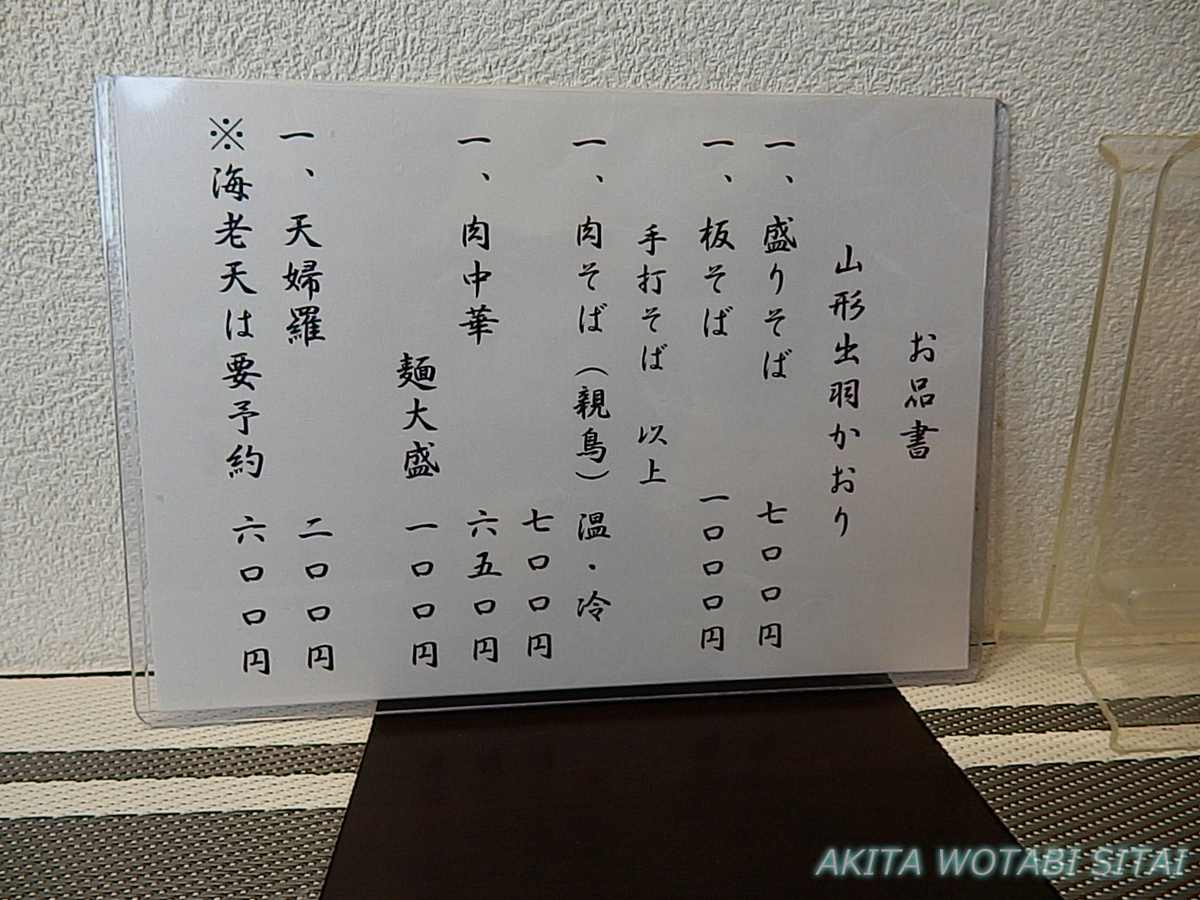 お品書
山形出羽かおり
一、盛りそば 七〇〇円
一、板そば 一〇〇〇円
手打そば 以上
一、肉そば(親鳥)温・冷
七〇〇円
一、肉中華 六五〇円
麺大盛 一〇〇円
一、天婦羅 二〇〇円
※海老天は要予約 六〇〇円
AKITA WOTABI SITAI